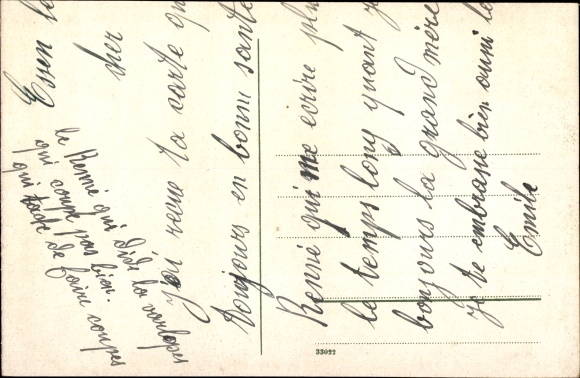 Essen le
cher
J'ai recue ta carte qu
toujours en bonne santé
Renné qui me ecrire plu
le temps long quant j
bonjours la grand mère
je te embrasse bien ouni le
Emile
le Renné qui didi la
qui coupe pas bien.
qui tache de faire coupes
33022